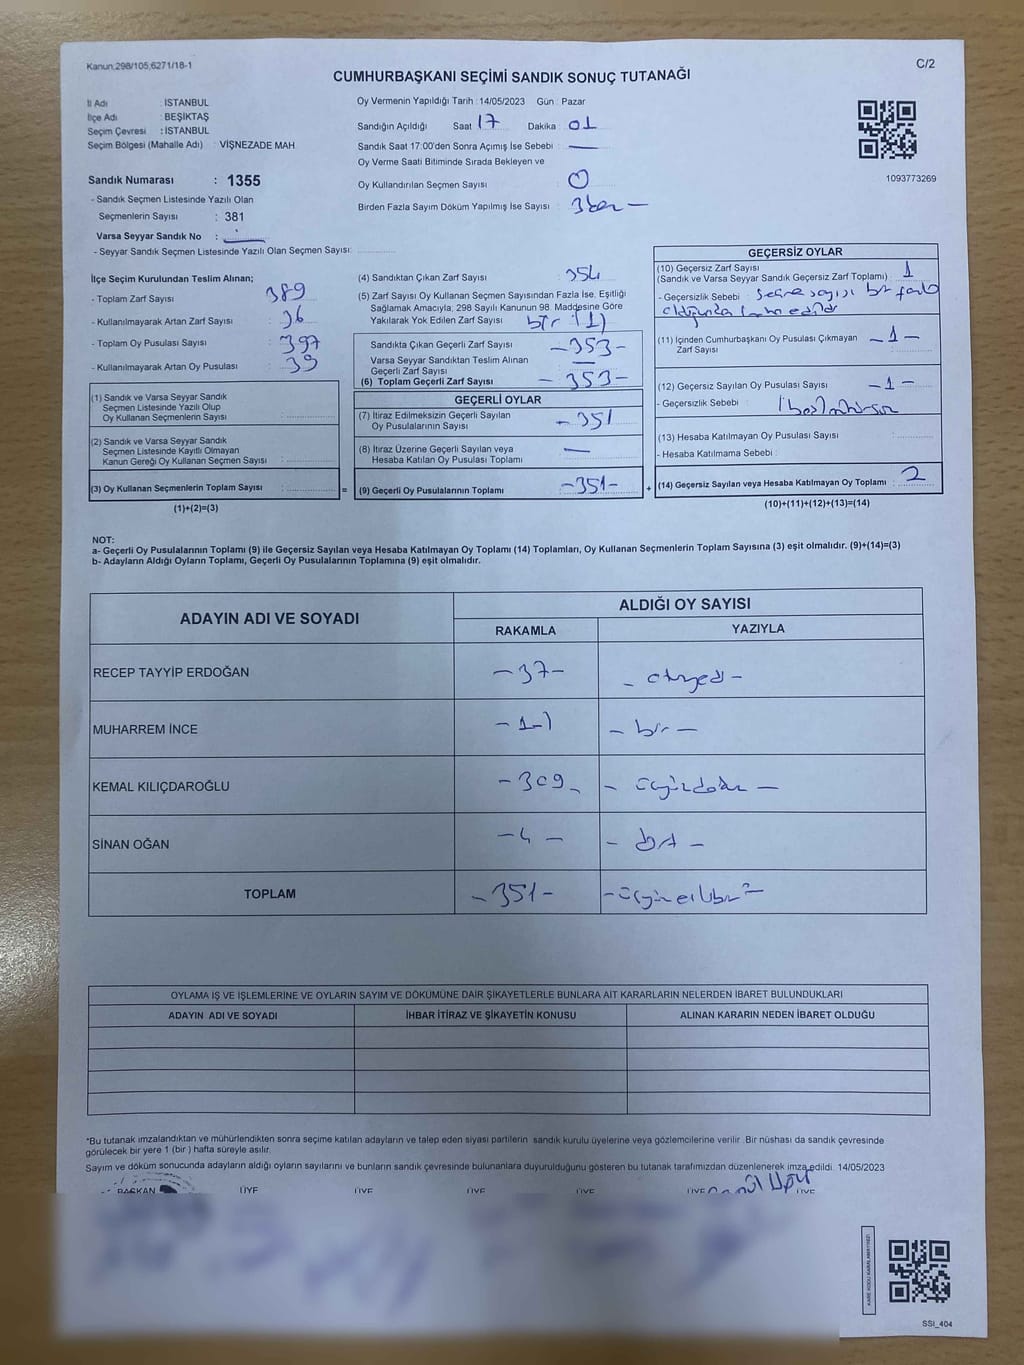 Kanun;298/105,6271/18-1
C/2
CUMHURBAŞKANI SEÇİMİ SANDIK SONUÇ TUTANAĞI
İl Adı : İSTANBUL
İlçe Adı : BEŞİKTAŞ
Seçim Çevresi : İSTANBUL
Seçim Bölgesi (Mahalle Adı) : VİŞNEZADE MAH.
Oy Vermenin Yapıldığı Tarih : 14/05/2023 Gün : Pazar
Sandığın Açıldığı Saat 17 Dakika : 01
Sandık Saat 17:00'den Sonra Açımış İse Sebebi : —
Oy Verme Saati Bitiminde Sırada Bekleyen ve
Oy Kullandırılan Seçmen Sayısı : 0
Birden Fazla Sayım Döküm Yapılmış İse Sayısı :
1093773269
Sandık Numarası : 1355
- Sandık Seçmen Listesinde Yazılı Olan
Seçmenlerin Sayısı : 381
Varsa Seyyar Sandık No :
- Seyyar Sandık Seçmen Listesinde Yazılı Olan Seçmen Sayısı:
İlçe Seçim Kurulundan Teslim Alınan;
- Toplam Zarf Sayısı : 389
- Kullanılmayarak Artan Zarf Sayısı : 36
- Toplam Oy Pusulası Sayısı : 397
- Kullanılmayarak Artan Oy Pusulası : 39
(1) Sandık ve Varsa Seyyar Sandık
Seçmen Listesinde Yazılı Olup
Oy Kullanan Seçmenlerin Sayısı :
(2) Sandık ve Varsa Seyyar Sandık
Seçmen Listesinde Kayıtlı Olmayan
Kanun Gereği Oy Kullanan Seçmen Sayısı :
(3) Oy Kullanan Seçmenlerin Toplam Sayısı :
(1)+(2)=(3)
(4) Sandıktan Çıkan Zarf Sayısı : 354
(5) Zarf Sayısı Oy Kullanan Seçmen Sayısından Fazla İse, Eşitliği
Sağlamak Amacıyla, 298 Sayılı Kanunun 98. Maddesine Göre
Yakılarak Yok Edilen Zarf Sayısı : bir (1)
Sandıkta Çıkan Geçerli Zarf Sayısı : -353-
Varsa Seyyar Sandıktan Teslim Alınan
Geçerli Zarf Sayısı : —
(6) Toplam Geçerli Zarf Sayısı : -353-
GEÇERLİ OYLAR
(7) İtiraz Edilmeksizin Geçerli Sayılan
Oy Pusulalarının Sayısı : - 351
(8) İtiraz Üzerine Geçerli Sayılan veya
Hesaba Katılan Oy Pusulası Toplamı : —
= (9) Geçerli Oy Pusulalarının Toplamı : -351-
GEÇERSİZ OYLAR
(10) Geçersiz Zarf Sayısı
(Sandık ve Varsa Seyyar Sandık Geçersiz Zarf Toplamı) : 1
- Geçersizlik Sebebi : sayısı bir fazla
(11) İçinden Cumhurbaşkanı Oy Pusulası Çıkmayan
Zarf Sayısı : -1-
(12) Geçersiz Sayılan Oy Pusulası Sayısı : -1-
- Geçersizlik Sebebi :
(13) Hesaba Katılmayan Oy Pusulası Sayısı :
- Hesaba Katılmama Sebebi :
+ (14) Geçersiz Sayılan veya Hesaba Katılmayan Oy Toplamı : 2
(10)+(11)+(12)+(13)=(14)
NOT:
a- Geçerli Oy Pusulalarının Toplamı (9) ile Geçersiz Sayılan veya Hesaba Katılmayan Oy Toplamı (14) Toplamları, Oy Kullanan Seçmenlerin Toplam Sayısına (3) eşit olmalıdır. (9)+(14)=(3)
b- Adayların Aldığı Oyların Toplamı, Geçerli Oy Pusulalarının Toplamına (9) eşit olmalıdır.
ADAYIN ADI VE SOYADI
ALDIĞI OY SAYISI
RAKAMLA YAZIYLA
RECEP TAYYİP ERDOĞAN -37- - otuzyedi -
MUHARREM İNCE -1- - bir -
KEMAL KILIÇDAROĞLU -309- - üçyüzdokuz -
SİNAN OĞAN -4- - dört -
TOPLAM -351- - üçyüzellibir -
OYLAMA İŞ VE İŞLEMLERİNE VE OYLARIN SAYIM VE DÖKÜMÜNE DAİR ŞİKAYETLERLE BUNLARA AİT KARARLARIN NELERDEN İBARET BULUNDUKLARI
ADAYIN ADI VE SOYADI İHBAR İTİRAZ VE ŞİKAYETİN KONUSU ALINAN KARARIN NEDEN İBARET OLDUĞU
*Bu tutanak imzalandıktan ve mühürlendikten sonra seçime katılan adayların ve talep eden siyasi partilerin sandık kurulu üyelerine veya gözlemcilerine verilir. Bir nüshası da sandık çevresinde
görülecek bir yere 1 (bir ) hafta süreyle asılır.
Sayım ve döküm sonucunda adayların aldığı oyların sayılarını ve bunların sandık çevresinde bulunanlara duyurulduğunu gösteren bu tutanak tarafımızdan düzenlenerek imza edildi. 14/05/2023
BAŞKAN ÜYE ÜYE ÜYE ÜYE ÜYE ÜYE
SSI_404